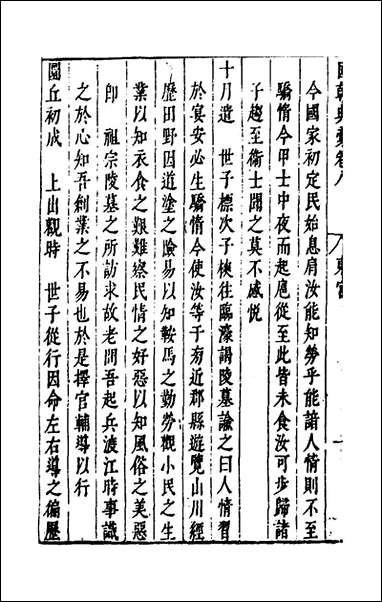 國朝典彙卷八 東宮
今國家初定民始息肩汝能知勞乎能諳人情則不至
驕惰今甲士中夜而起扈從至此皆未食汝可步歸諸
子趨至衛士聞之莫不感悅
十月遣 世子標次子樉往臨濠謁陵墓諭之曰人情習
於宴安必生驕惰今使汝等于旁近郡縣遊覽山川經
歷田野因道塗之險易以知鞍馬之勤勞觀小民之生
業以知衣食之艱難察民情之好惡以知風俗之美惡
卽 祖宗陵墓之所訪求故老問吾起兵渡江時事識
之於心知吾創業之不易也於是擇官輔導以行
圜丘初成 上出觀時 世子從行因命左右導之徧歷